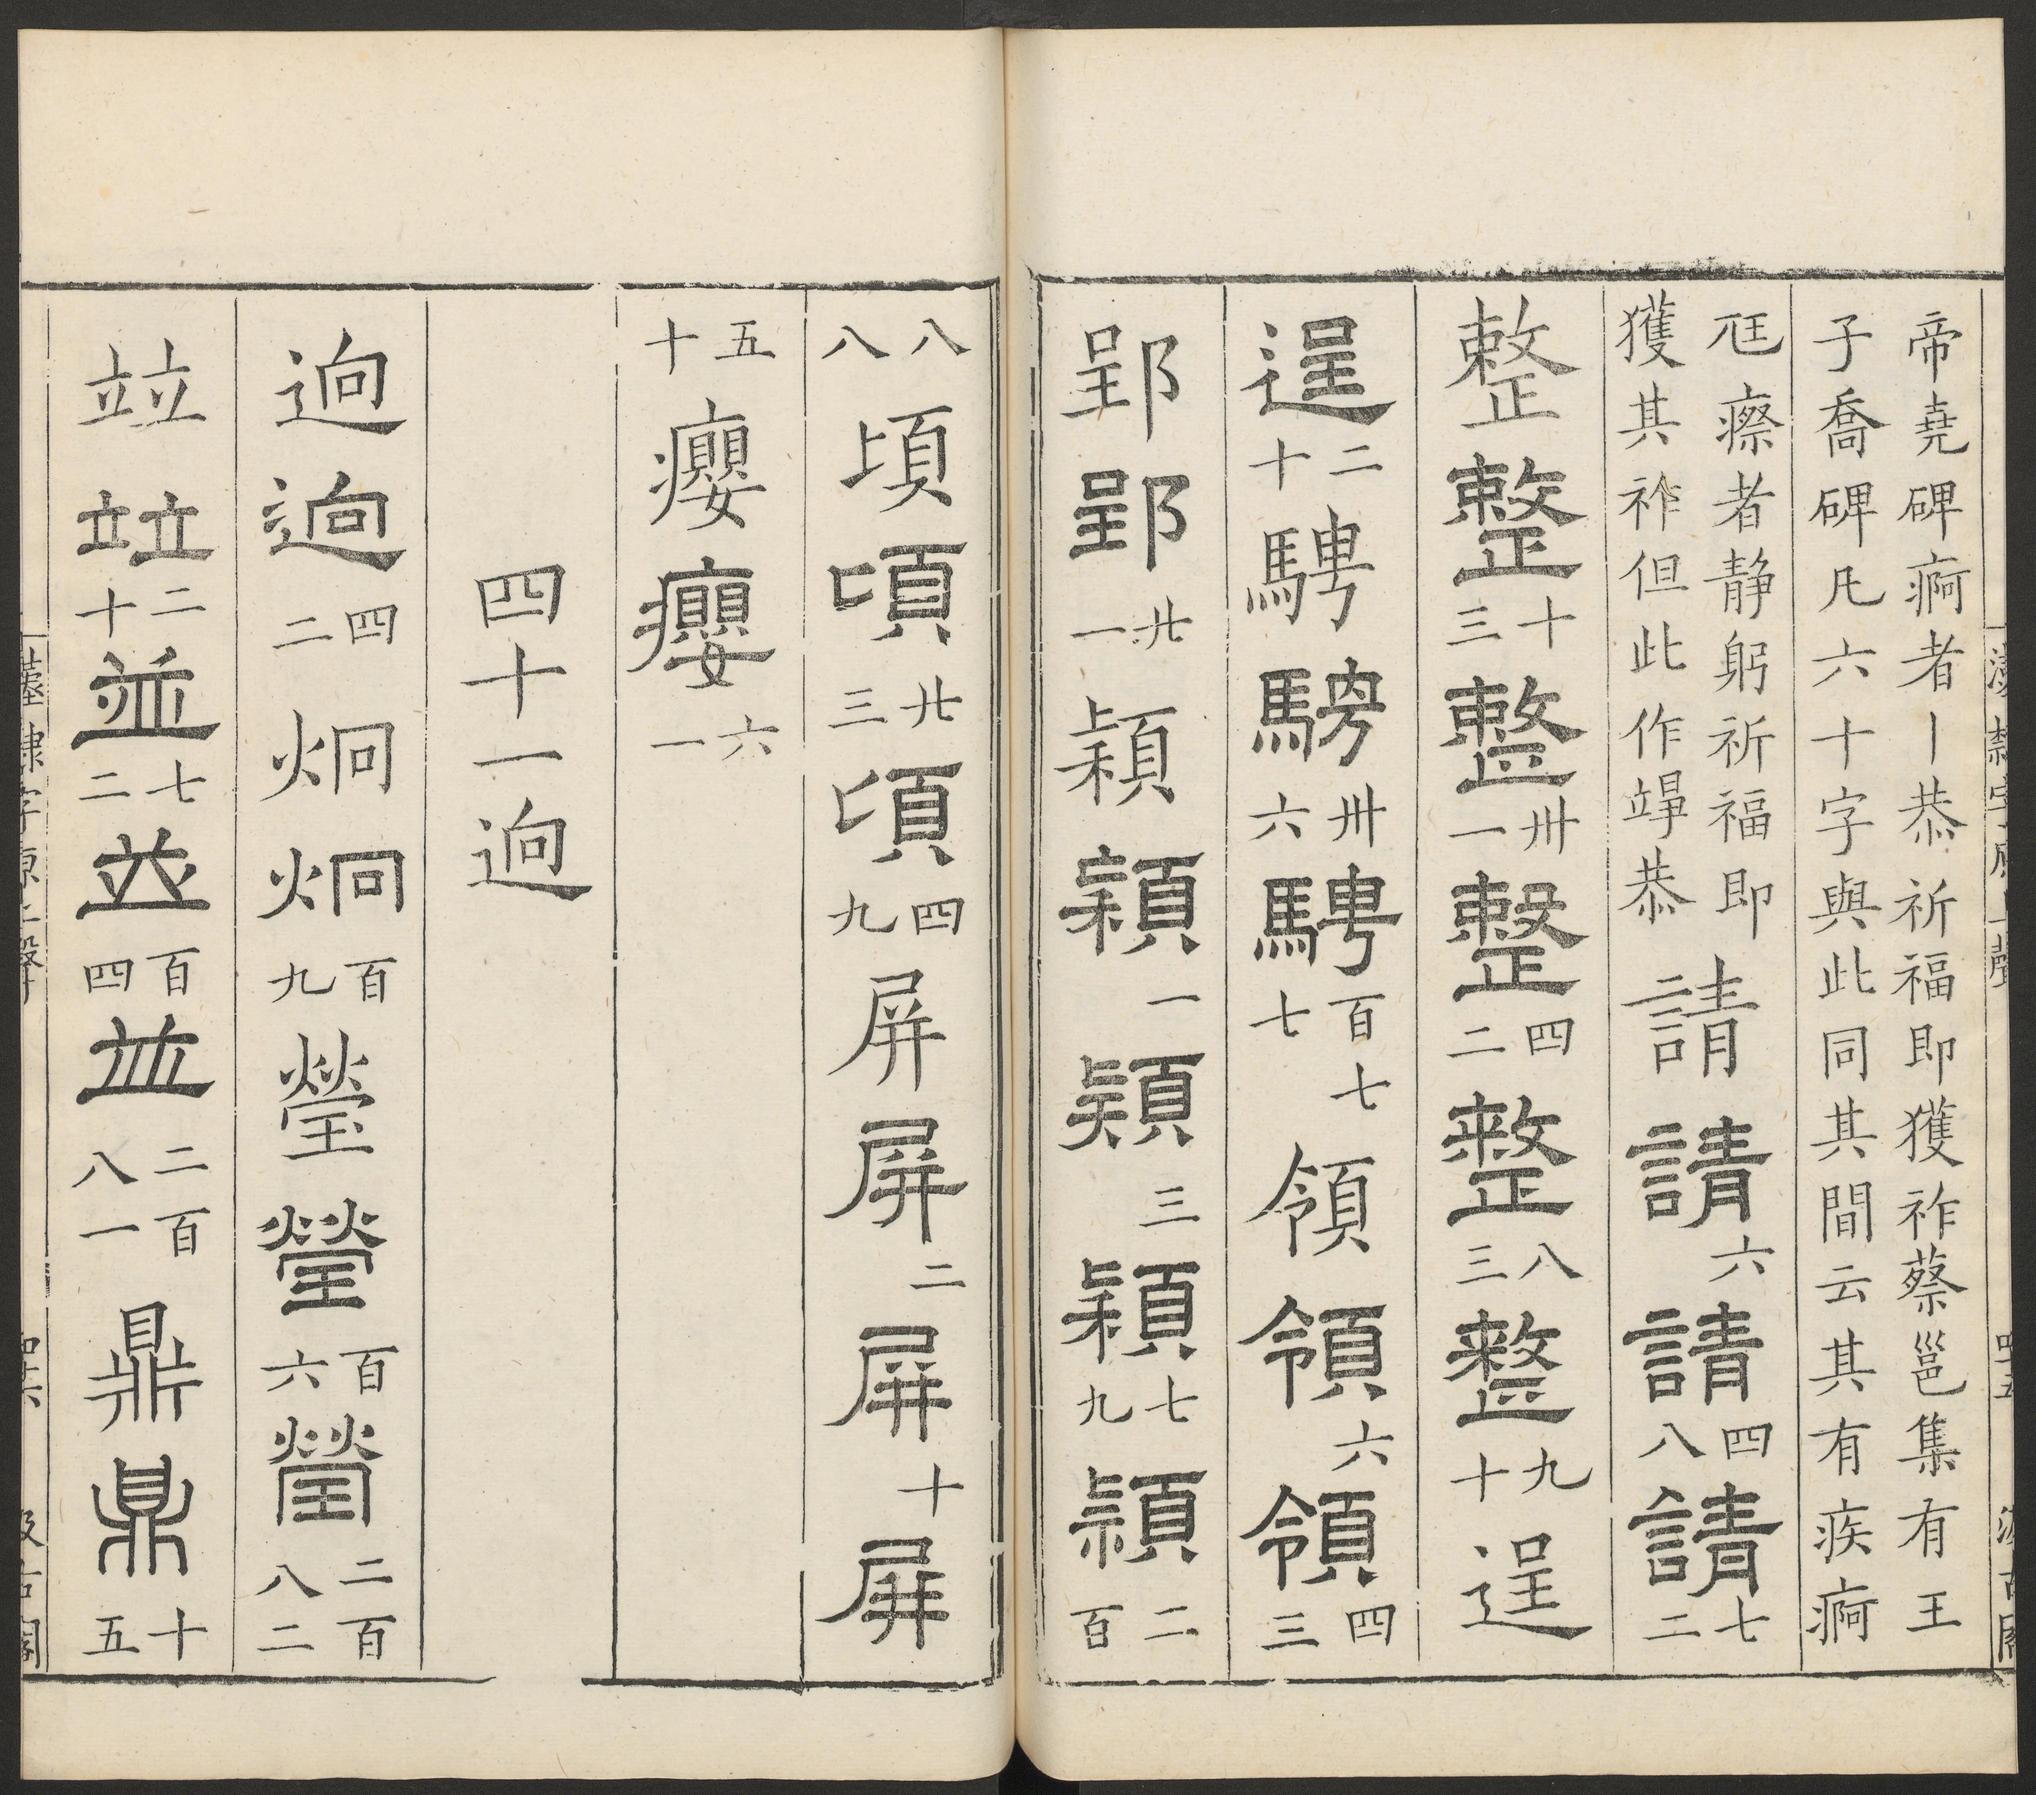 帝堯碑痾者丨恭祈福即獲祚蔡邕集有王
子喬碑凡六十字與此同其間云其有疾痾
尫瘵者静躬祈福即
獲其祚但此作竫恭
請請六請四八請七二
整整十三整卅一整四二整八三整九十逞
逞二十騁騁卅六騁百七七領領六領四三
郢郢廿一穎穎一穎三穎七九穎二百
八八頃頃廿三頃四九屏屏二屏十屏
五十癭癭六一
四十一迥
迥迥四二炯炯百九瑩瑩百六瑩二百八二
竝竝二十並七二並百四並二百八一鼎鼎十五